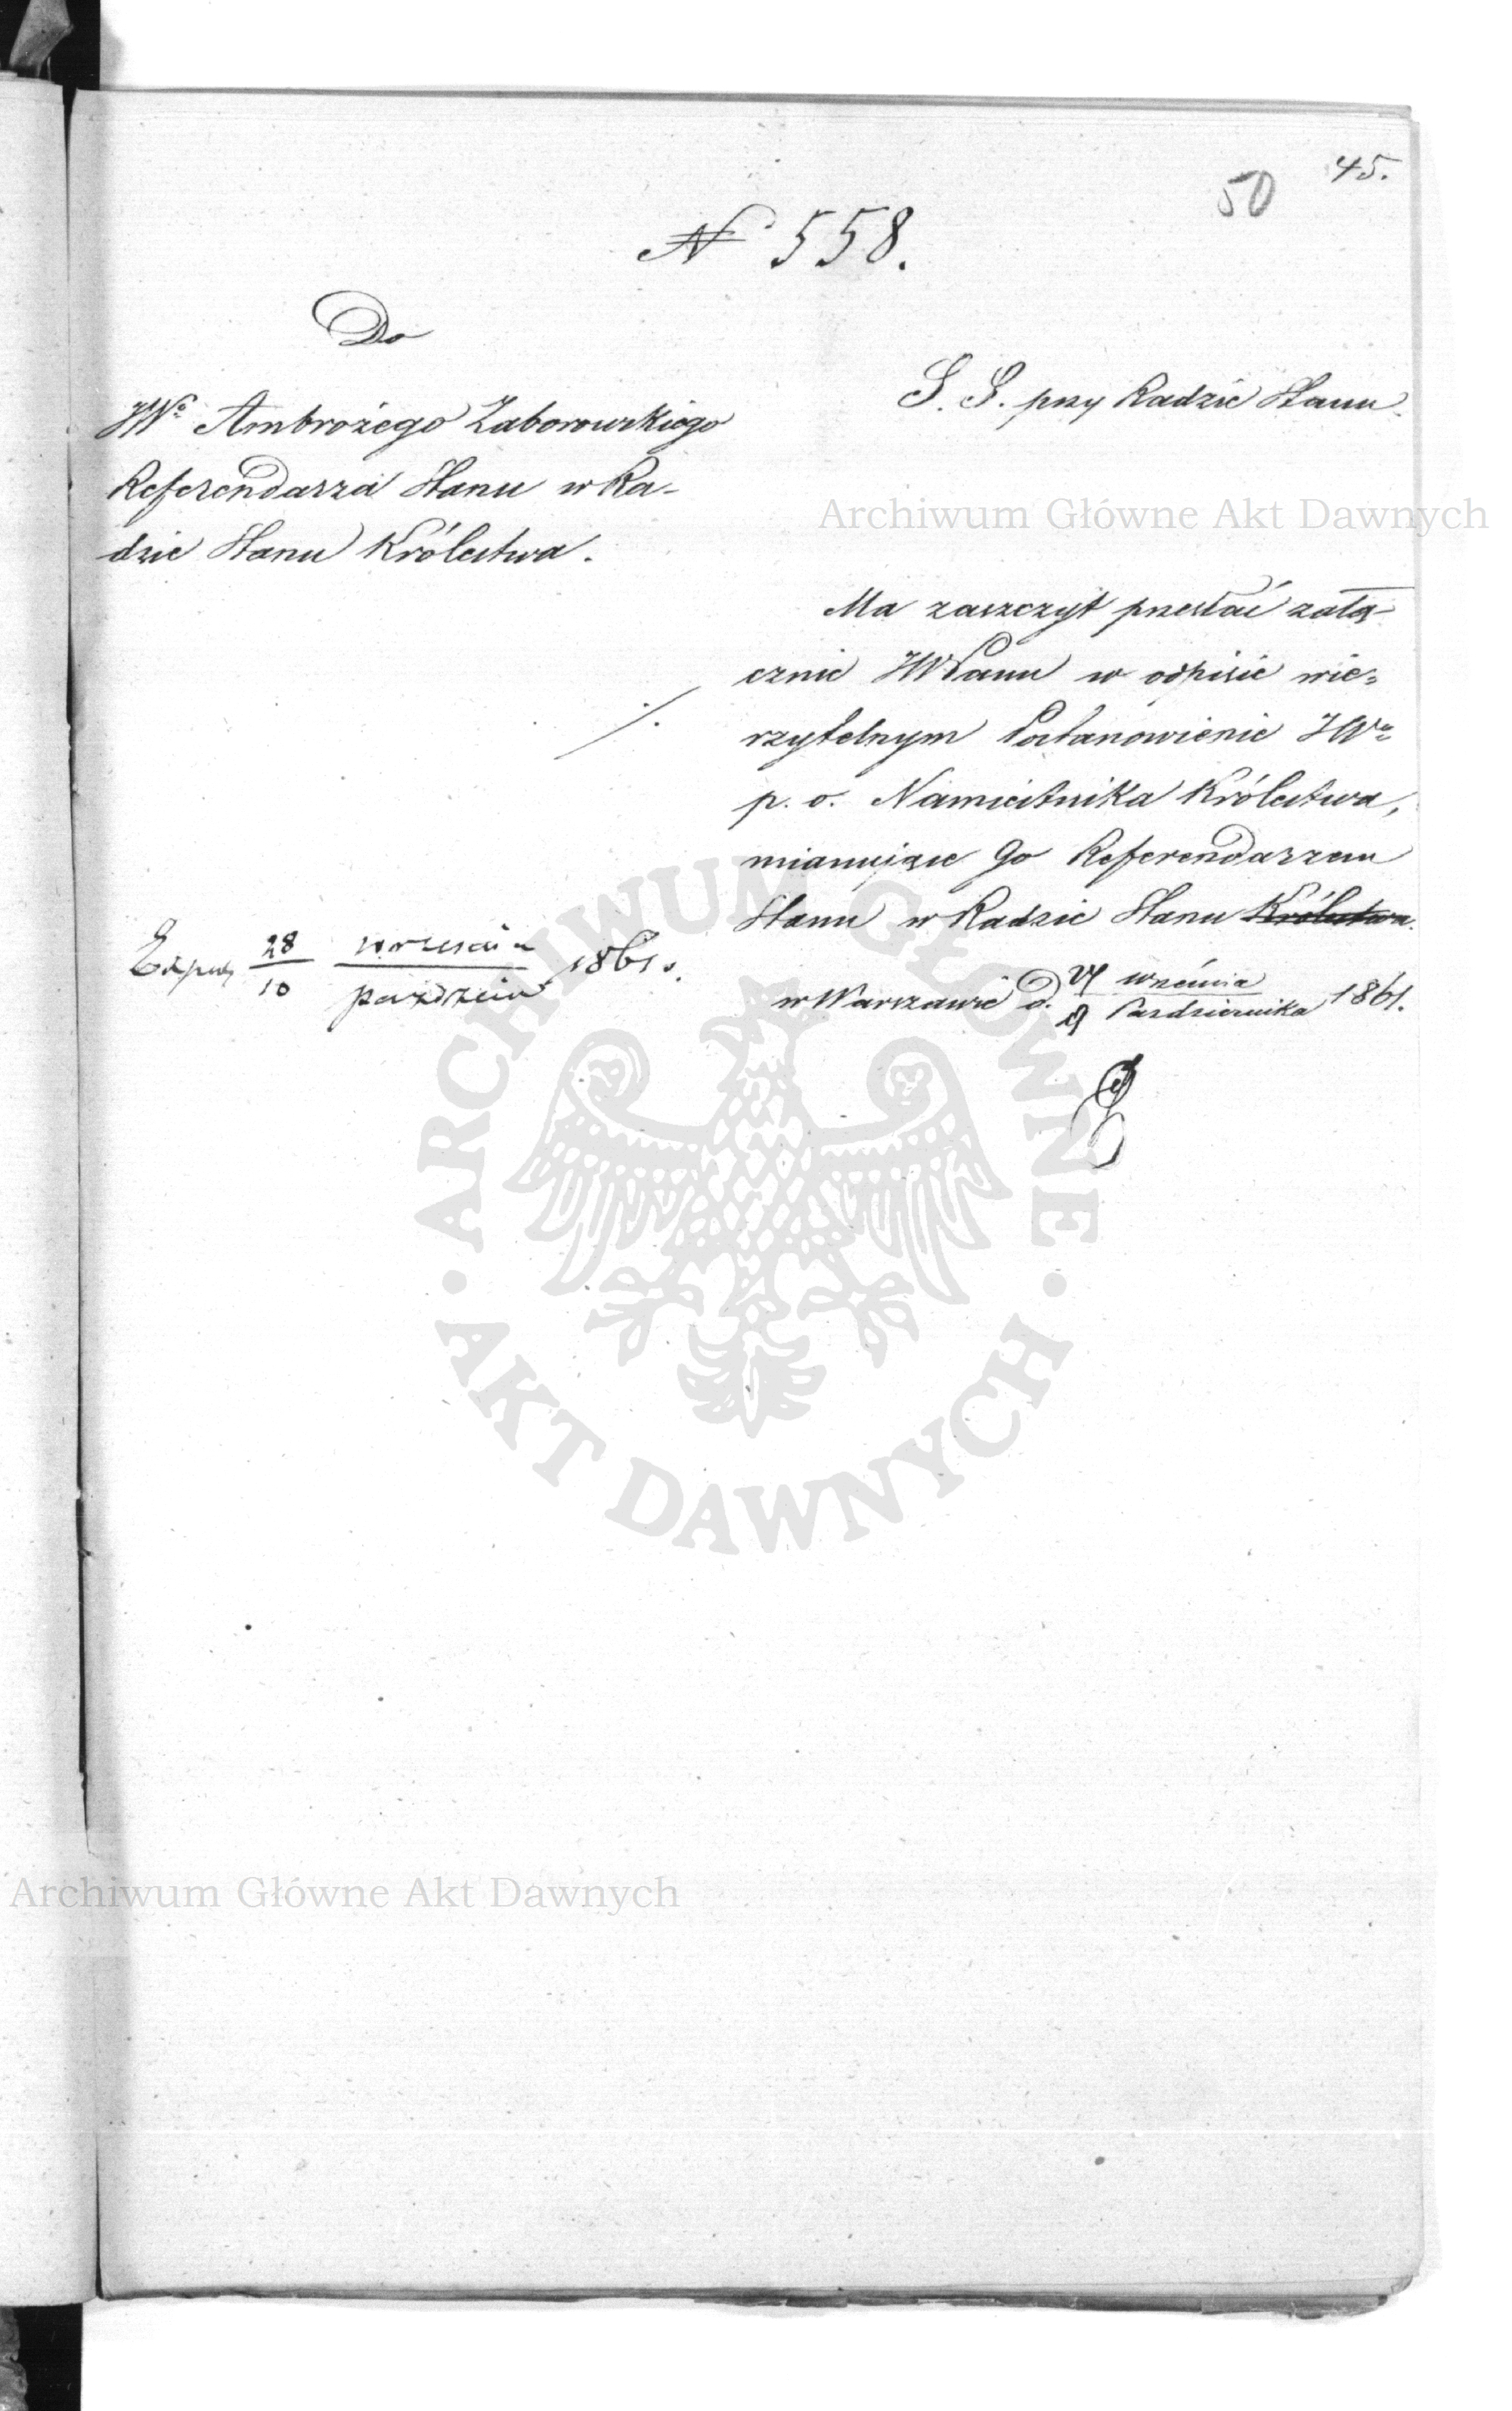 45.
50
N 558.
Do
JWo Ambrożego Zaborowskiego
Referendarza Stanu w Ra-
dzie Stanu Królestwa.
S. S. przy Radzie Stanu.
Archiwum Główne Akt Dawnych
Ma zaszczyt przesłać załą-
cznie JWPanu w odpisie wie=
rzytelnym Postanowienie JWo
p. o. Namiestnika Królestwa,
mianujące Go Referendarzem
Stanu w Radzie Stanu Królestwa.
w Warszawie d. września
9 Października 1861.
28 września
10 paździer 1861.
ARCHIWUM GŁÓWNE
AKT DAWNYCH
Archiwum Główne Akt Dawnych